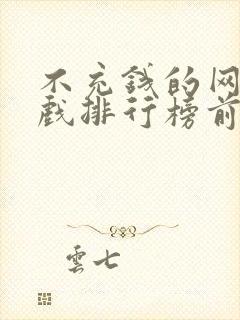 不充钱的网
戏排行榜前
雲七